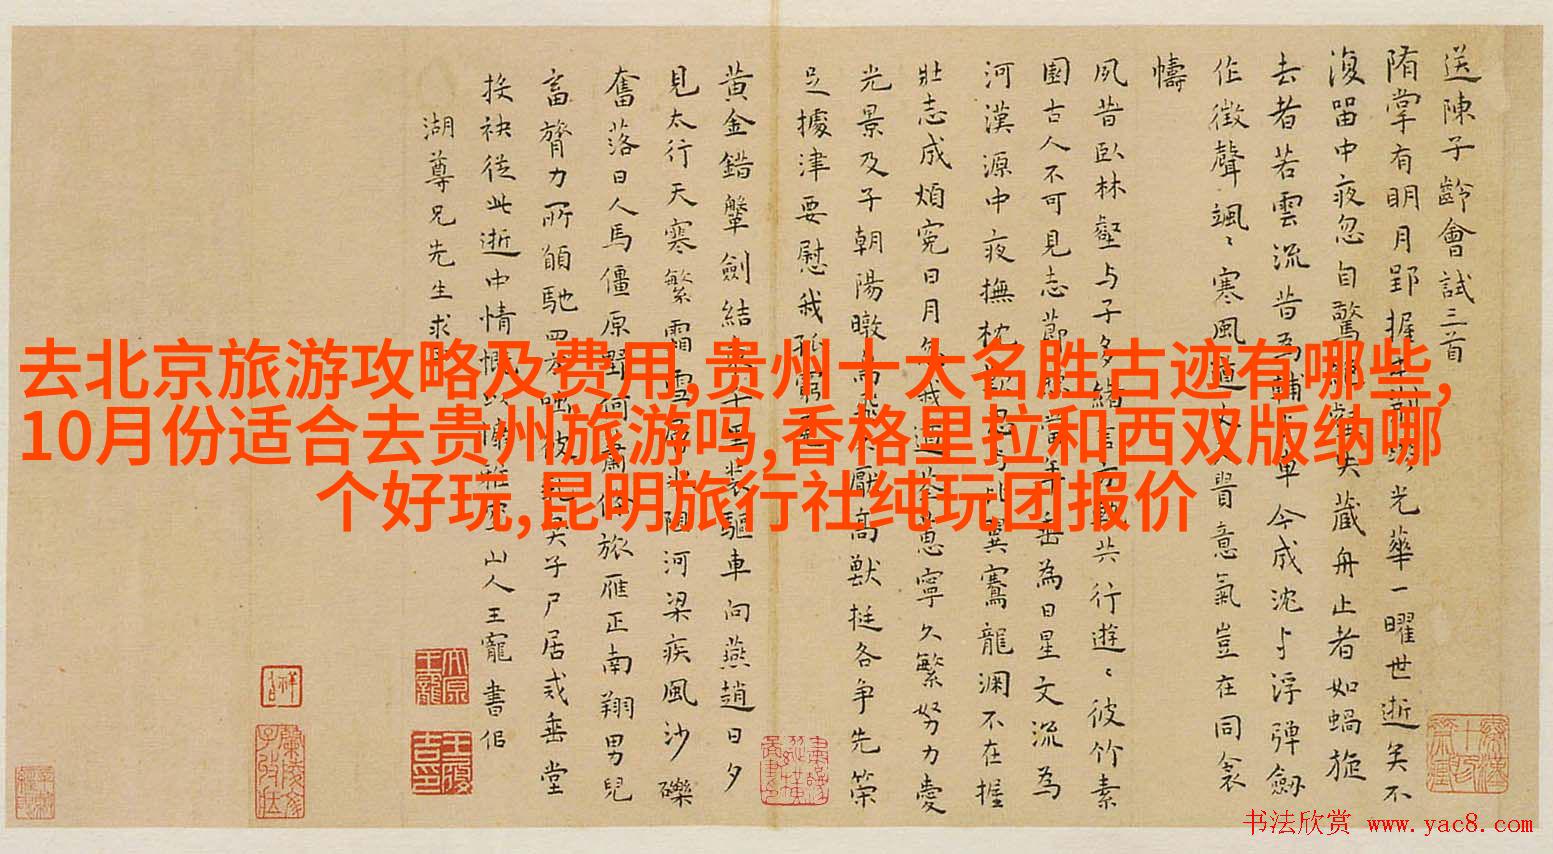 送陳子齡會試三首
隋掌有明月郢握光華一曜世逝矣不
復留中夜忽自驚失藏舟止者如蝸旋
去者若雲流昔為今成沈与浮彈劔
作徵聲颯〻寒風遒丈人貴意氣豈在同衾
幬
夙昔臥林壑与子多緒言方期共行遊〻彼竹素
園古人不可見志節垂為日星文流為
河漢源中夜撫枕歎翼騫龍淵不在握
壯志成煩寃日月蕙寧久繁努力愛
光景及子朝陽暾鳥厭高獸挺各争先榮
足據津要慰我
黄金錯鞶劍結裝驅車向燕趙日夕
見太行天寒繁霜雪河梁疾風沙礫
奮落日人馬僵原野何蕭條旅雁正南翔男兒
畜膂力所願馳四方夫子尸居或垂堂
接袂從此逝中情慨山人王寵書佀
湖尊兄先生求
去北京旅游攻略及费用,贵州十大名胜古迹有哪些,
10月份适合去贵州旅游吗,香格里拉和西双版纳哪
个好玩,昆明旅行社纯玩团报价
书法欣赏 www.yac8.com